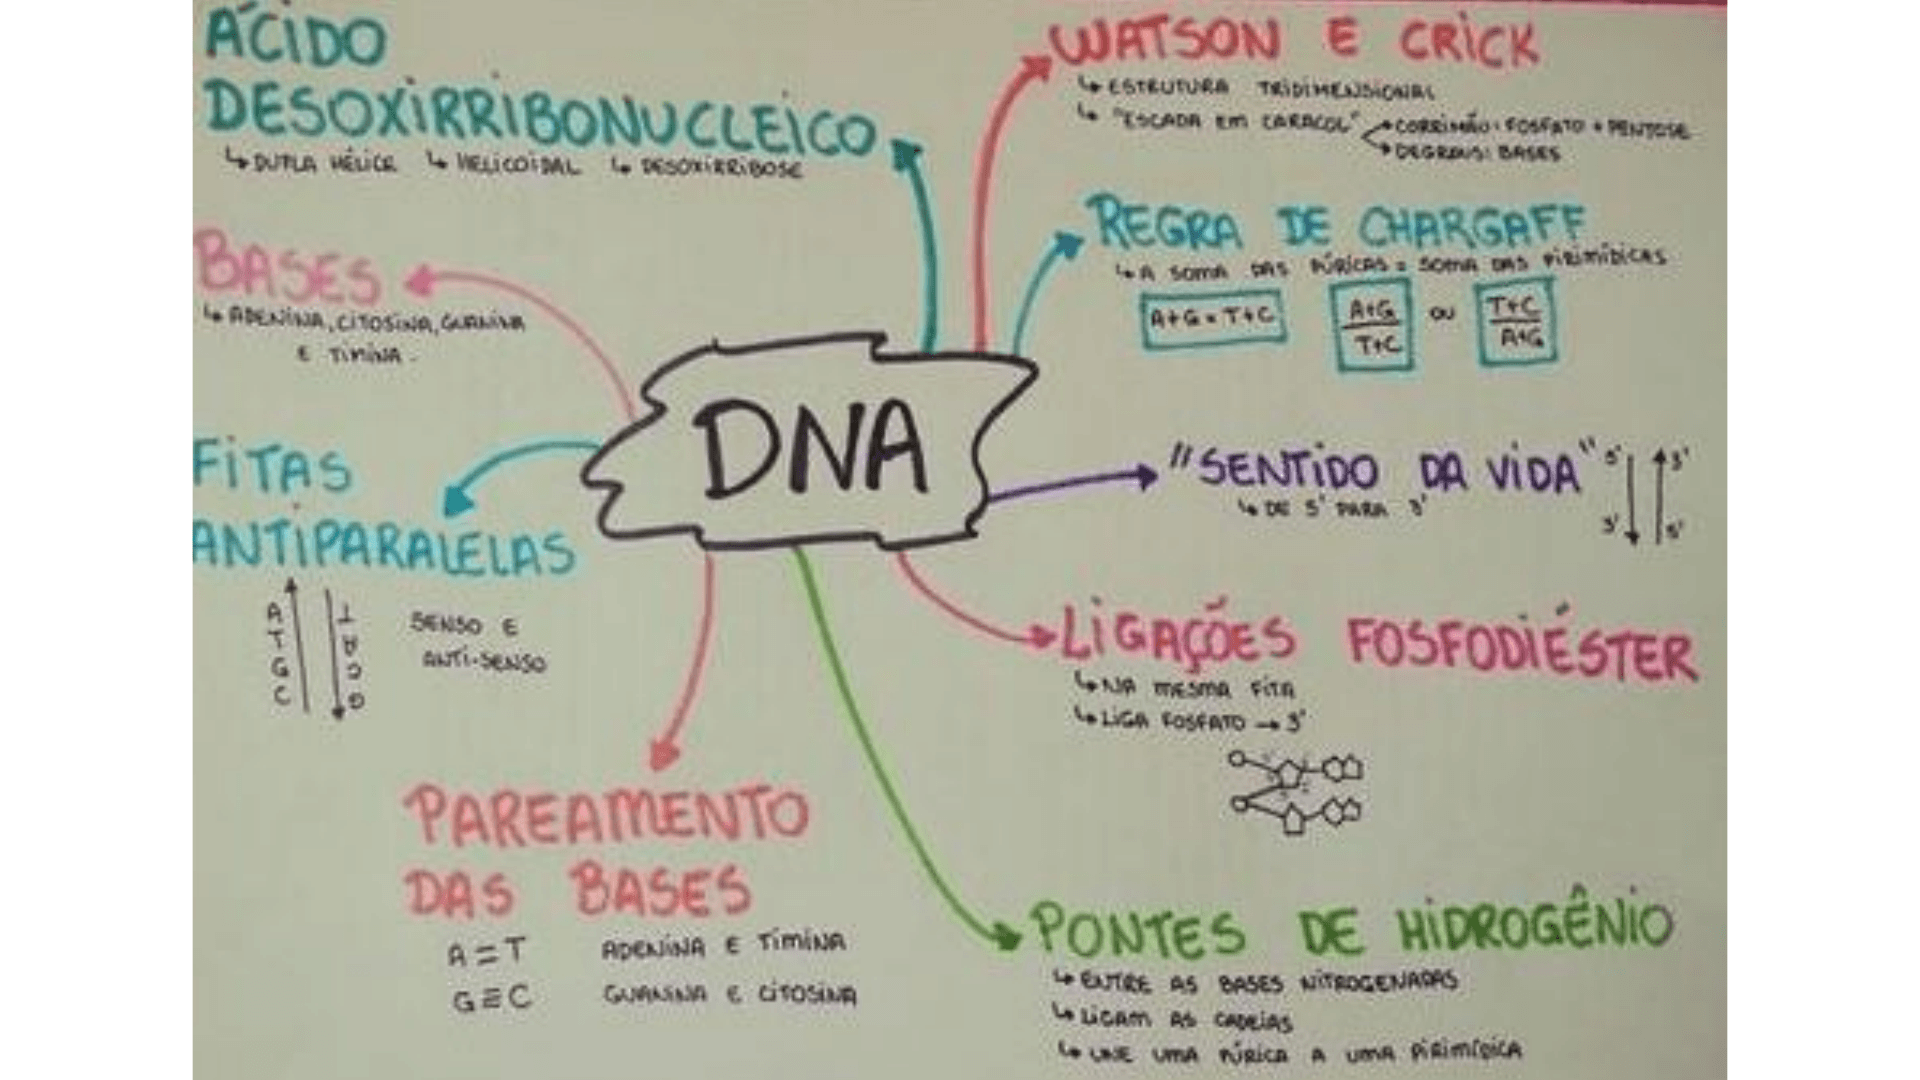 ÁCIDO
DESOXIRRIBONUCLEICO
↳ DUPLA HÉLICE ↳ HELICOIDAL ↳ DESOXIRRIBOSE
WATSON E CRICK
↳ ESTRUTURA TRIDIMENSIONAL
↳ "ESCADA EM CARACOL"
CORRIMÃO: FOSFATO + PENTOSE
DEGRAUS: BASES
REGRA DE CHARGAFF
↳ A SOMA DAS PÚRICAS = SOMA DAS PIRIMÍDICAS
A+G = T+C
A+G
T+C
OU
T+C
A+G
BASES
↳ ADENINA, CITOSINA, GUANINA
E TIMINA.
DNA
"SENTIDO DA VIDA"
↳ DE 5' PARA 3'
5' 3'
3' 5'
FITAS
ANTIPARALELAS
A T
T A
G C
C G
SENSO E
ANTI-SENSO
LIGAÇÕES FOSFODIÉSTER
↳ NA MESMA FITA
↳ LIGA FOSFATO → 3'
PAREAMENTO
DAS BASES
A = T ADENINA E TIMINA
G ≡ C GUANINA E CITOSINA
PONTES DE HIDROGÊNIO
↳ ENTRE AS BASES NITROGENADAS
↳ LIGAM AS CADEIAS
↳ UNE UMA PÚRICA A UMA PIRIMÍDICA